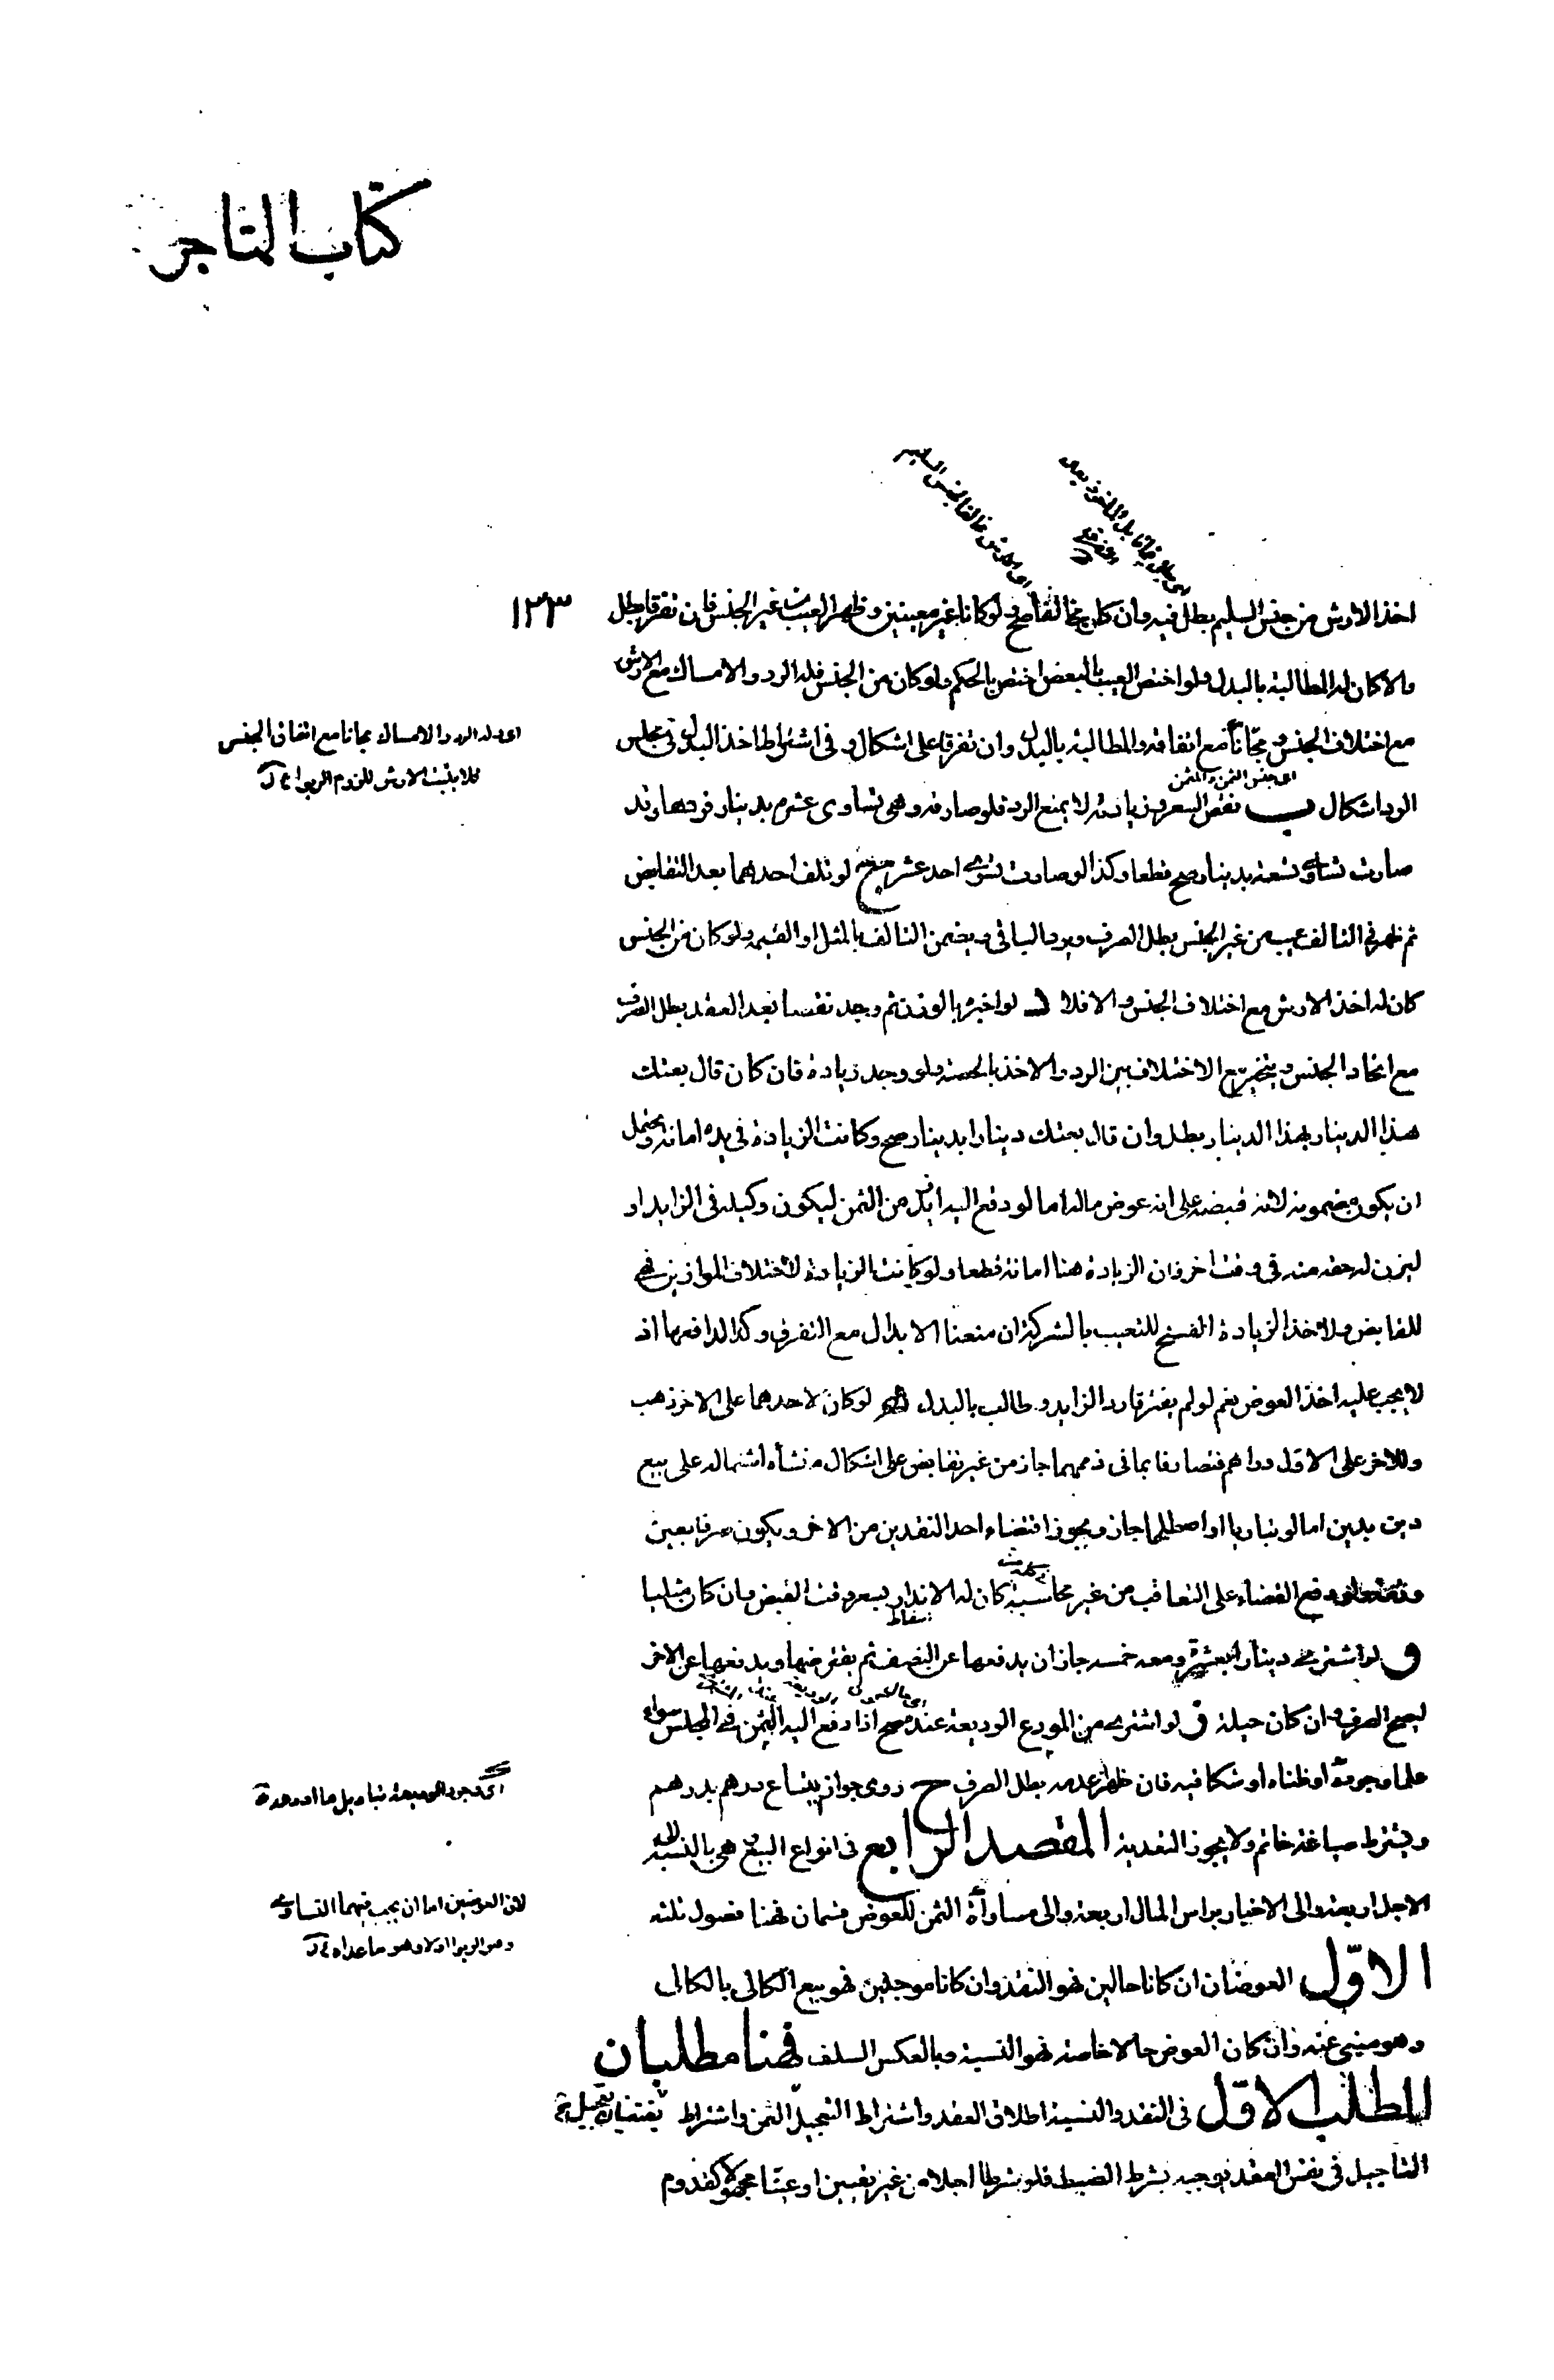 كتاب المتاجر
١٢٣
اخذ الارش من جنس السليم بطل فيه وان كان مخالفا صح ولو كانا غير معينين وظهر العيب من غير الجنس فان تفرقا بطل
والا كان له المطالبة بالبدل ولو اختص العيب بالبعض اختص بالحكم ولو كان من الجنس فله الرد والامساك مع الارش
مع اختلاف الجنس ومجّانا مع اتفاقه والمطالبة بالبدل وان تفرقا على اشكال وفى اشتراط اخذ البدل فى مجلس
اى جنس الثمن والمثمن
الرد اشكال ب نقص السعر وزيادته لا يمنع الرد فلو صارفه وهى تساوى عشرة بدينار فردها وقد
صارت تساوى تسعة بدينار صح قطعا وكذا لو صارت تسوى احد عشر ج لو تلف احدهما بعد التقابض
ثم ظهر فى التالف عيب من غير الجنس بطل الصرف ويرد الباقى ويضمن التالف بالمثل او القيمة ولو كان من الجنس
كان له اخذ الارش مع اختلاف الجنس والا فلا د لو اخبره بالوزن ثم وجد نقصا بعد العقد بطل الصرف
مع اتحاد الجنس ويتخير مع الاختلاف بين الرد والاخذ بالحصة ولو وجد زيادة فان كان قال بعتك
هذا الدينار بهذا الدينار بطل وان قال بعتك دينارا بدينار صح وكانت الزيادة فى يده امانة ويحتمل
ان يكون مضمونة لانه قبضه على انه عوض ماله اما لو دفع اليه ازيد من الثمن ليكون وكيله فى الزايد او
ليزن له حقه منه فى وقت اخر فان الزيادة هنا امانة قطعا ولو كانت الزيادة لاختلاف الموازين فهى
للقابض ولاخذ الزيادة الفسخ للتعيب بالشركة ان منعنا الابدال مع التفرق وكذا لدافعها اذ
لا يجب عليه اخذ العوض نعم لو لم يفترقا رد الزايد وطالب بالبدل ه لو كان لاحدهما على الاخر ذهب
وللاخر على الاول دراهم فتصارفا بما فى ذممهما جاز من غير تقابض على اشكال منشأه اشتماله على بيع
دين بدين اما لو تباريا او اصطلحا جاز ويجوز اقتضاء احد النقدين من الاخر ويكون صرفا بعين
وذمة ولو دفع القضاء على التعاقب من غير محاسبة كان له الاندار بسعر وقت القبض وان كان مثليا
اسقاط
و لو اشترى دينارا بعشرة ومعه خمسة جاز ان يدفعها عن النصف ثم يقترضها ويدفعها عن الاخر
ليصح الصرف وان كان حيلة ز لو اشترى من المودع الوديعة عنده صح اذا دفع اليه الثمن فى المجلس سواء
علما وجوده او ظناه او شكا فيه فان ظهر عدمه بطل الصرف ح روى جواز ابتياع درهم بدرهم
ويشترط صياغة خاتم ولا يجوز التعدية المقصد الرابع فى انواع البيع وهى بالنسبة الى
الاجل اربعة والى الاخبار براس المال اربعة والى مساوأة الثمن للعوض قسمان فهنا فصول ثلثة
الاوّل العوضان ان كانا حالين فهو النقد وان كانا موجلين فهو بيع الكالى بالكالى
وهو منهى عنه وان كان العوض حالا خاصة فهو النسية وبالعكس السلف فهنا مطلبان
المطلب الاوّل فى النقد والنسية اطلاق العقد واشتراط التعجيل الثمن واشتراط يقتضيان تعجيله
التاجيل فى نفس العقد يوجبه بشرط الضبط فلو شرطا اجلا من غير تعيين او عيّنا مجهولا كقدوم
اى وله الرد والامساك مجانا مع اتفاق الجنس
فلا يثبت الارش للزوم الربوا
لان العوضين اما ان يجب فيهما التساوى
وهو الربوا اولا وهو ما عداه